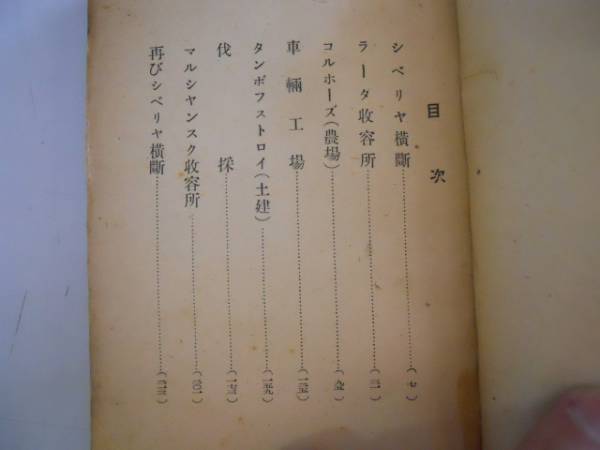 目次
シベリヤ橫斷………(七)
ラーダ收容所………(三一)
コルホーズ(農場)………
車輛工場………
タンボフストロイ(土建)………
伐採………
マルシヤンスク收容所………(二〇一)
再びシベリヤ橫斷………